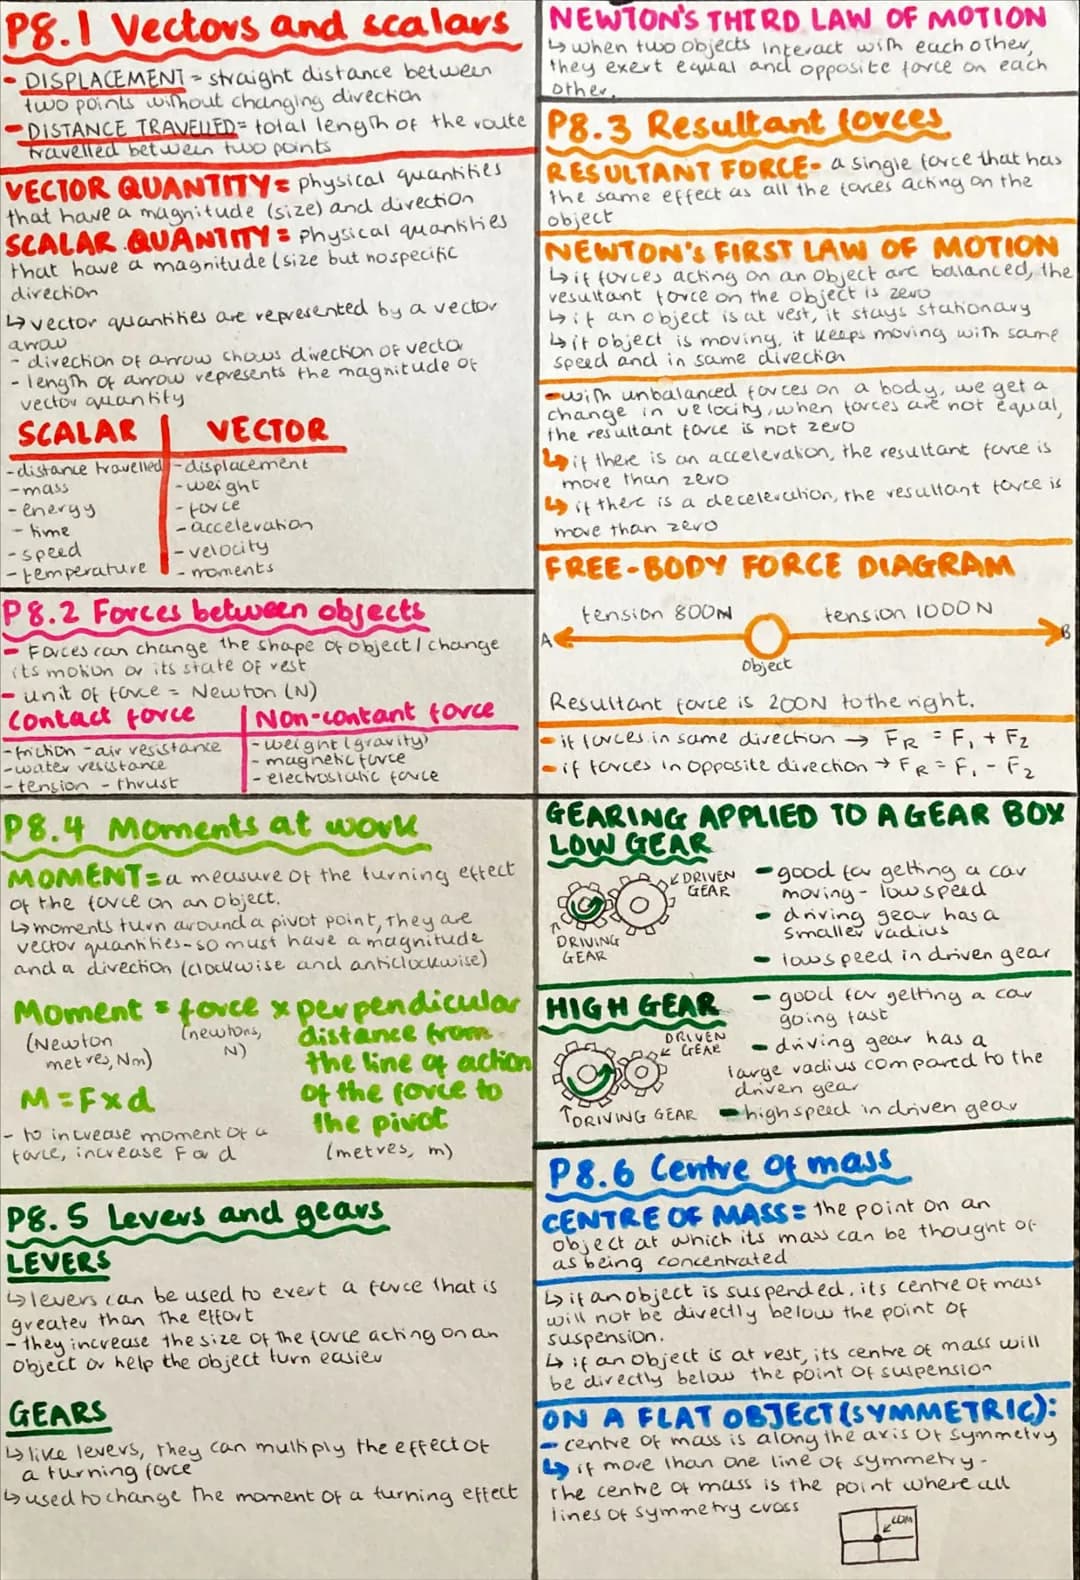 P8.1 Vectors and scalars
- DISPLACEMENT = straight distance between
two points without changing direction
- DISTANCE TRAVELLED = total length of the route
travelled between two points
VECTOR QUANTITY = physical quantities
that have a magnitude (size) and direction
SCALAR QUANTITY = physical quantities
that have a magnitude (size but no specific
direction
↳ vector quantities are represented by a vector
arrow
- direction of arrow shows direction of vector
- length of arrow represents the magnitude of
vector quantity
SCALAR | VECTOR
- distance travelled - displacement
- mass - weight
- energy - force
- time - acceleration
- speed - velocity
- temperature - moments
P8.2 Forces between objects
- Forces can change the shape of object / change
its motion or its state of rest
- unit of force = Newton (N)
Contact force | Non-contant force
- friction - air resistance - weight (gravity)
- water resistance - magnetic force
- tension - thrust - electrostatic force
NEWTON'S THIRD LAW OF MOTION
↳ when two objects interact with each other,
they exert equal and opposite force on each
other.
P8.3 Resultant forces
RESULTANT FORCE - a single force that has
the same effect as all the forces acting on the
object
NEWTON'S FIRST LAW OF MOTION
↳ if forces acting on an object are balanced, the
resultant force on the object is zero
↳ if an object is at rest, it stays stationary
↳ if object is moving, it keeps moving with same
speed and in same direction
- with unbalanced forces on a body, we get a
change in velocity, when forces are not equal,
the resultant force is not zero
↳ if there is an acceleration, the resultant force is
more than zero
↳ if there is a deceleration, the resultant force is
more than zero
FREE-BODY FORCE DIAGRAM
tension 800N tension 1000N
A B
Object
Resultant force is 200N to the right.
- if forces in same direction → FR = F1 + F2
- if forces in opposite direction → FR = F1 - F2
P8.4 Moments at work
MOMENT = a measure of the turning effect
of the force on an object.
↳ moments turn around a pivot point, they are
vector quantities - so must have a magnitude
and a direction (clockwise and anticlockwise)
Moment = force x perpendicular
distance from
the line of action
of the force to
the pivot
(Newton
metres, Nm)
(newtons,
N)
(metres, m)
M = F x d
- to increase moment of a
force, increase F or d
P8.5 Levers and gears
LEVERS
↳ levers can be used to exert a force that is
greater than the effort
- they increase the size of the force acting on an
object or help the object turn easier
GEARS
↳ like levers, they can multiply the effect of
a turning force
↳ used to change the moment of a turning effect
GEARING APPLIED TO A GEAR BOX
LOW GEAR
DRIVEN
GEAR
DRIVING
GEAR
- good for getting a car
moving - low speed
- driving gear has a
smaller radius
- low speed in driven gear
HIGH GEAR
DRIVEN
GEAR
DRIVING GEAR
- good for getting a car
going fast
- driving gear has a
large radius compared to the
driven gear
- high speed in driven gear
P8.6 Centre of mass
CENTRE OF MASS = the point on an
object at which its mass can be thought of
as being concentrated
↳ if an object is suspended, its centre of mass
will not be directly below the point of
suspension.
↳ if an object is at rest, its centre of mass will
be directly below the point of suspension
ON A FLAT OBJECT (SYMMETRIC):
- centre of mass is along the axis of symmetry
↳ if more than one line of symmetry -
the centre of mass is the point where all
lines of symmetry cross
COM